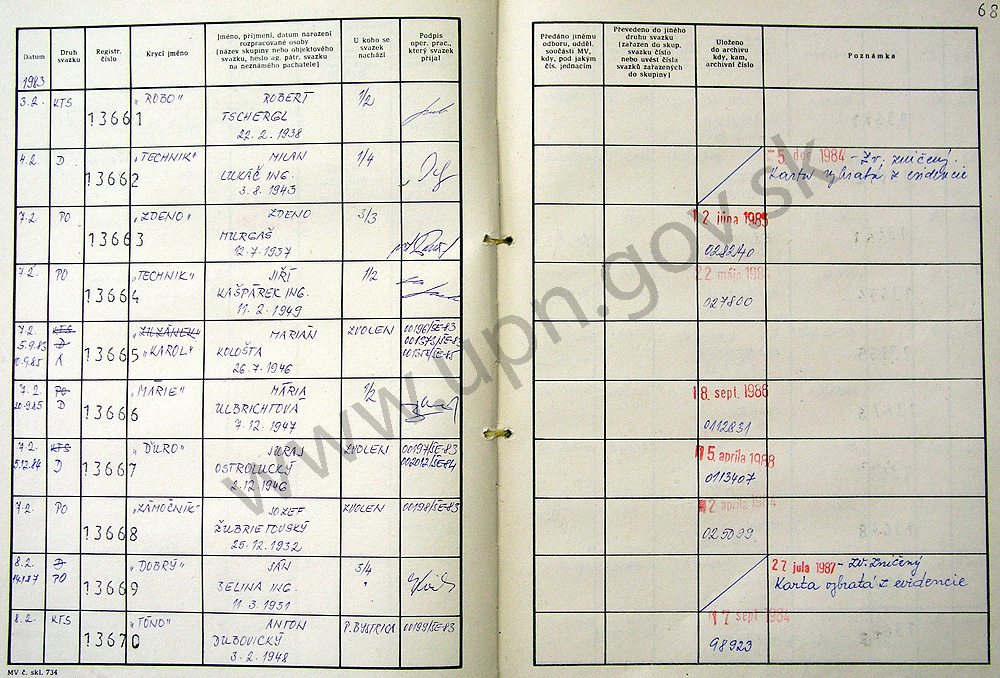 68
Datum
Druh svazku
Registr. číslo
Krycí jméno
Jméno, příjmení, datum narození rozpracované osoby [název skupiny nebo objektového svazku, heslo ag. pátr. svazku na neznámého pachatele]
U koho se svazek nachází
Podpis oper. prac., který svazek přijal
Předáno jinému odboru, odděl. součásti MV, kdy, pod jakým čís. jednacím
Převedeno do jiného druhu svazku [zařazen do skup. svazku číslo nebo uvést čísla svazků zařazených do skupiny]
Uloženo do archivu kdy, kam, archivní číslo
Poznámka
1983
3.2. KTS 13661 "ROBO" ROBERT 1/2
TSCHERGL
22.2.1938
4.2. D 13662 "TECHNIK" MILAN 1/4
LUKÁČ ING.
3.8.1943
5. dec. 1984 - Zv. zničený.
Karta vybratá z evidencie
7.2. PO 13663 "ZDENO" ZDENO 3/3
MURGAŠ
12.7.1957
12 júna 1985
028240
7.2. PO 13664 "TECHNIK" JIŘÍ 1/2
KAŠPÁREK ING.
11.2.1949
22 mája
027800
7.2. KTS 13665 MARIÁN ZVOLEN 00196/SE-83
5.9.83 D "KAROL" KOLOŠTA
K 26.7.1946
7.2. PO 13666 "MARIE" MÁRIA 1/2
20.9.85 D ULBRICHTOVÁ
7.12.1947
18. sept. 1986
0112831
7.2. KTS 13667 "ĎURO" JURAJ ZVOLEN 00197/SE-83
5.12.84 D OSTROLUCKÝ 002012/SE-84
2.12.1946
15. apríla 1988
0113407
7.2. PO 13668 "ZÁMOČNÍK" JOZEF ZVOLEN 00198/SE-83
ŽUBRIETOVSKÝ
25.12.1932
apríla 1984
025099
8.2. D 13669 "DOBRÝ" JÁN 3/4
PO SELINA ING. "
11.3.1931
27 jula 1987 - Zv. Zničený
Karta vybratá z evidencie
8.2. KTS 13670 "TONO" ANTON P. BYSTRICA 00199/SE-83
DUBOVICKÝ
3.2.1948
17 sept. 1984
98923
MV č. skl. 734
www.upn.gov.sk